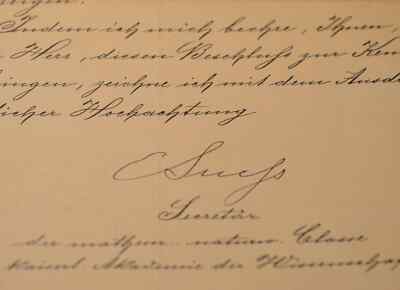 ingen.
Indem ich mich beehre, Ihnen,
Herr, diesen Beschluss zur Ken
bringen, zeichne ich mit dem Ausdr
licher Hochachtung
Suess
Secretär
der mathem. naturw. Classe
kaiserl. Akademie der Wissenschaf